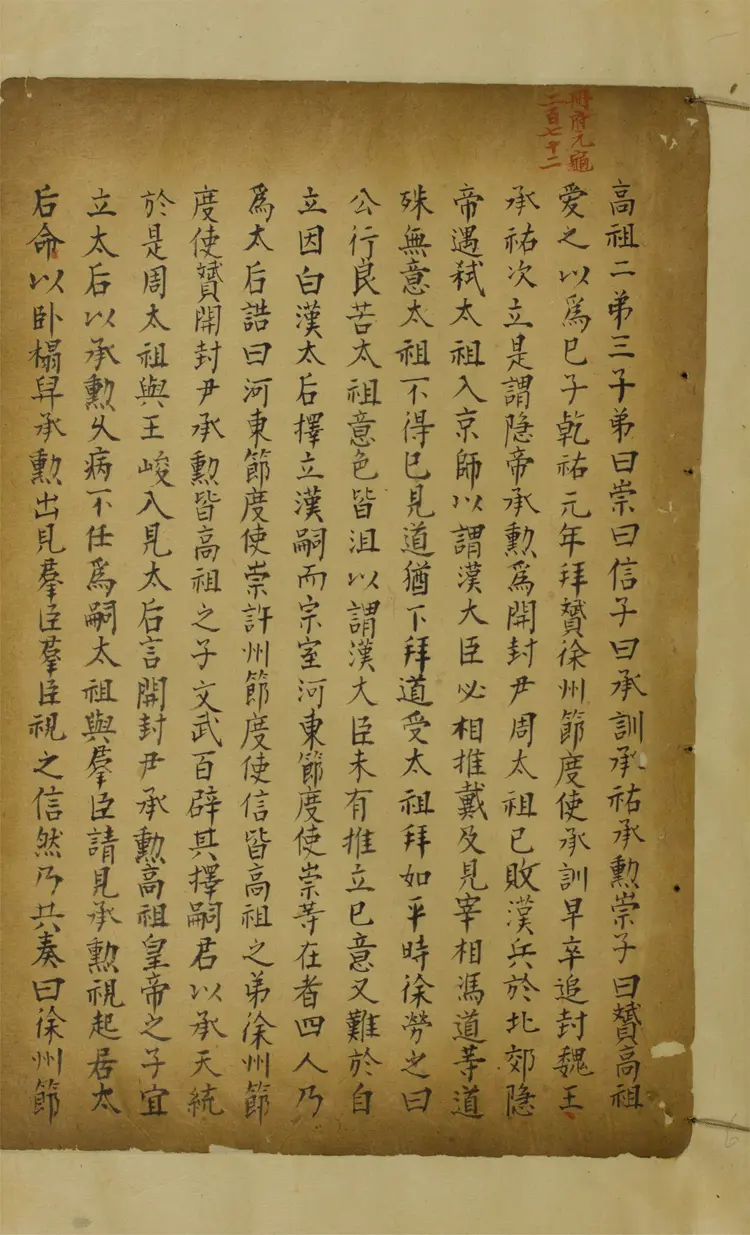 冊府元龜
二百七十二
高祖二弟三子弟曰崇曰信子曰承訓承祐承勲崇子曰贇高祖
愛之以爲已子乾祐元年拜贇徐州節度使承訓早卒追封魏王
承祐次立是謂隐帝承勲爲開封尹周太祖已敗漢兵於北郊隐
帝遇弑太祖入京師以謂漢大臣必相推戴及見宰相馮道等道
殊無意太祖不得已見道猶下拜道受太祖拜如平時徐勞之曰
公行良苦太祖意色皆沮以謂漢大臣未有推立已意又難於自
立因白漢太后擇立漢嗣而宗室河東節度使崇等在者四人乃
爲太后誥曰河東節度使崇許州節度使信皆高祖之弟徐州節
度使贇開封尹承勲皆高祖之子文武百辟其擇嗣君以承天統
於是周太祖與王峻入見太后言開封尹承勲高祖皇帝之子宜
立太后以承勲久病不任爲嗣太祖與羣臣請見承勲視起居太
后命以卧榻舁承勲出見羣臣羣臣視之信然乃共奏曰徐州節